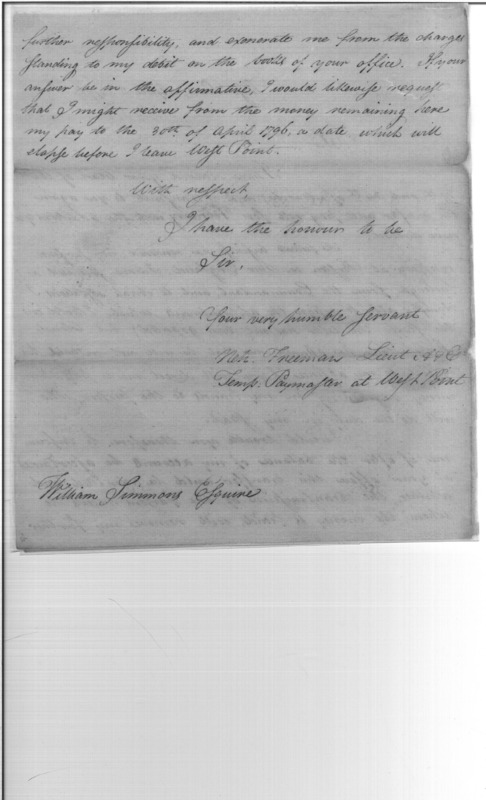 further responsibility, and exonerate me from the charges
standing to my debit on the books of your office. If your
answer be in the affirmative, I would likewise request
that I might receive from the money remaining here
my pay to the 30th of April 1796, a date which will
elapse before I leave West Point.
With respect
I have the honour to be
Sir,
Your very humble servant
Freeman Lieut
Temp. Paymaster at West Point
William Simmons Esquire